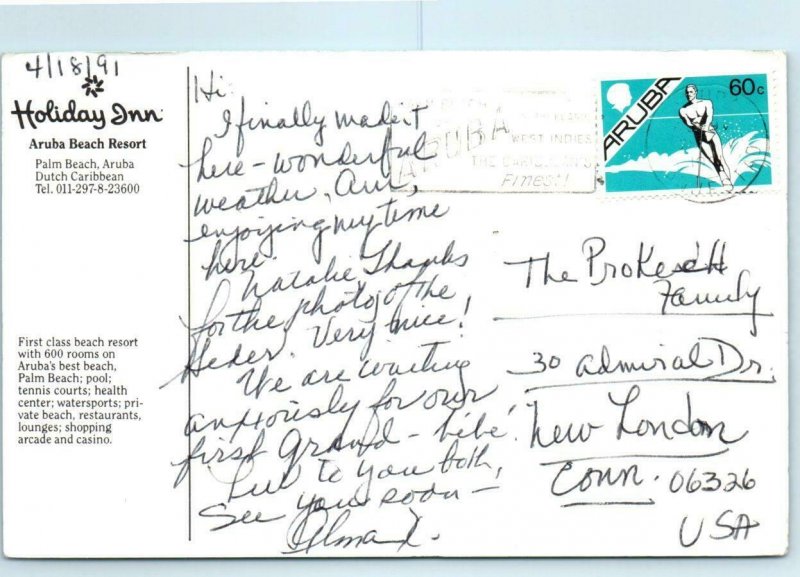 4/18/91
Holiday Inn
Aruba Beach Resort
Palm Beach, Aruba
Dutch Caribbean
Tel. 011-297-8-23600
First class beach resort
with 600 rooms on
Aruba's best beach,
Palm Beach; pool;
tennis courts; health
center; watersports; pri-
vate beach, restaurants,
lounges; shopping
arcade and casino.
Hi.
I finally made it
here - wonderful
weather. Am
enjoying my time
here.
Natalie Thanks
for the photo of the
Seder. Very nice!
We are waiting
anxiously for our
first Grand - bébé!
Luv to you both,
See you soon -
ARUBA
WEST INDIES
THE CARIBBEAN'S
FINEST!
ARUBA
60c
The
Family
30 Admiral Dr.
New London
Conn. 06326
USA